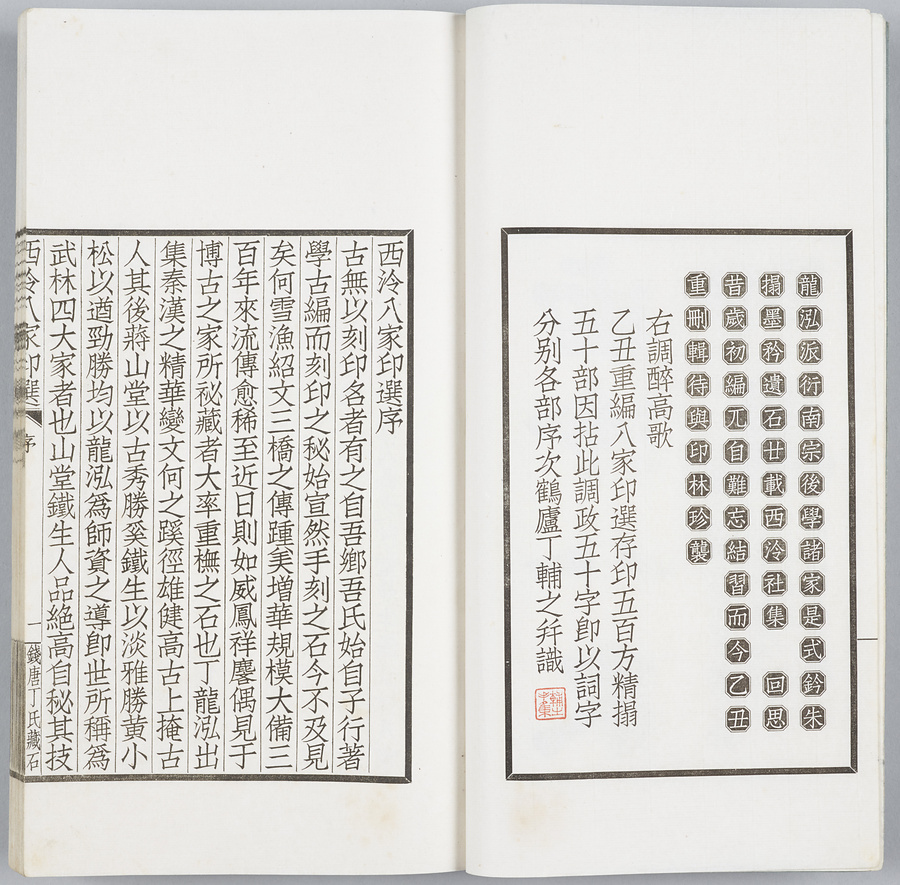 龍泓派衍南宗後學諸家是式鈐朱
搨墨矜遺石廿載西泠社集　回思
昔歲初編兀自難忘結習而今乙丑
重刪輯待與印林珍襲
右調醉高歌
乙丑重編八家印選存印五百方精搨
五十部因拈此調政五十字卽以詞字
分别各部序次鶴廬丁輔之幷識
西泠八家印選序
古無以刻印名者有之自吾鄉吾氏始自子行著
學古編而刻印之秘始宣然手刻之石今不及見
矣何雪漁紹文三橋之傳踵美增華規模大備三
百年來流傳愈稀至近日則如威鳳祥麐偶見于
博古之家所祕藏者大率重橅之石也丁龍泓出
集秦漢之精華變文何之蹊徑雄健高古上掩古
人其後蔣山堂以古秀勝奚鐵生以淡雅勝黄小
松以遒勁勝均以龍泓爲師資之導卽世所稱爲
武林四大家者也山堂鐵生人品絶高自秘其技
西泠八家印選 序 一 錢唐丁氏藏石